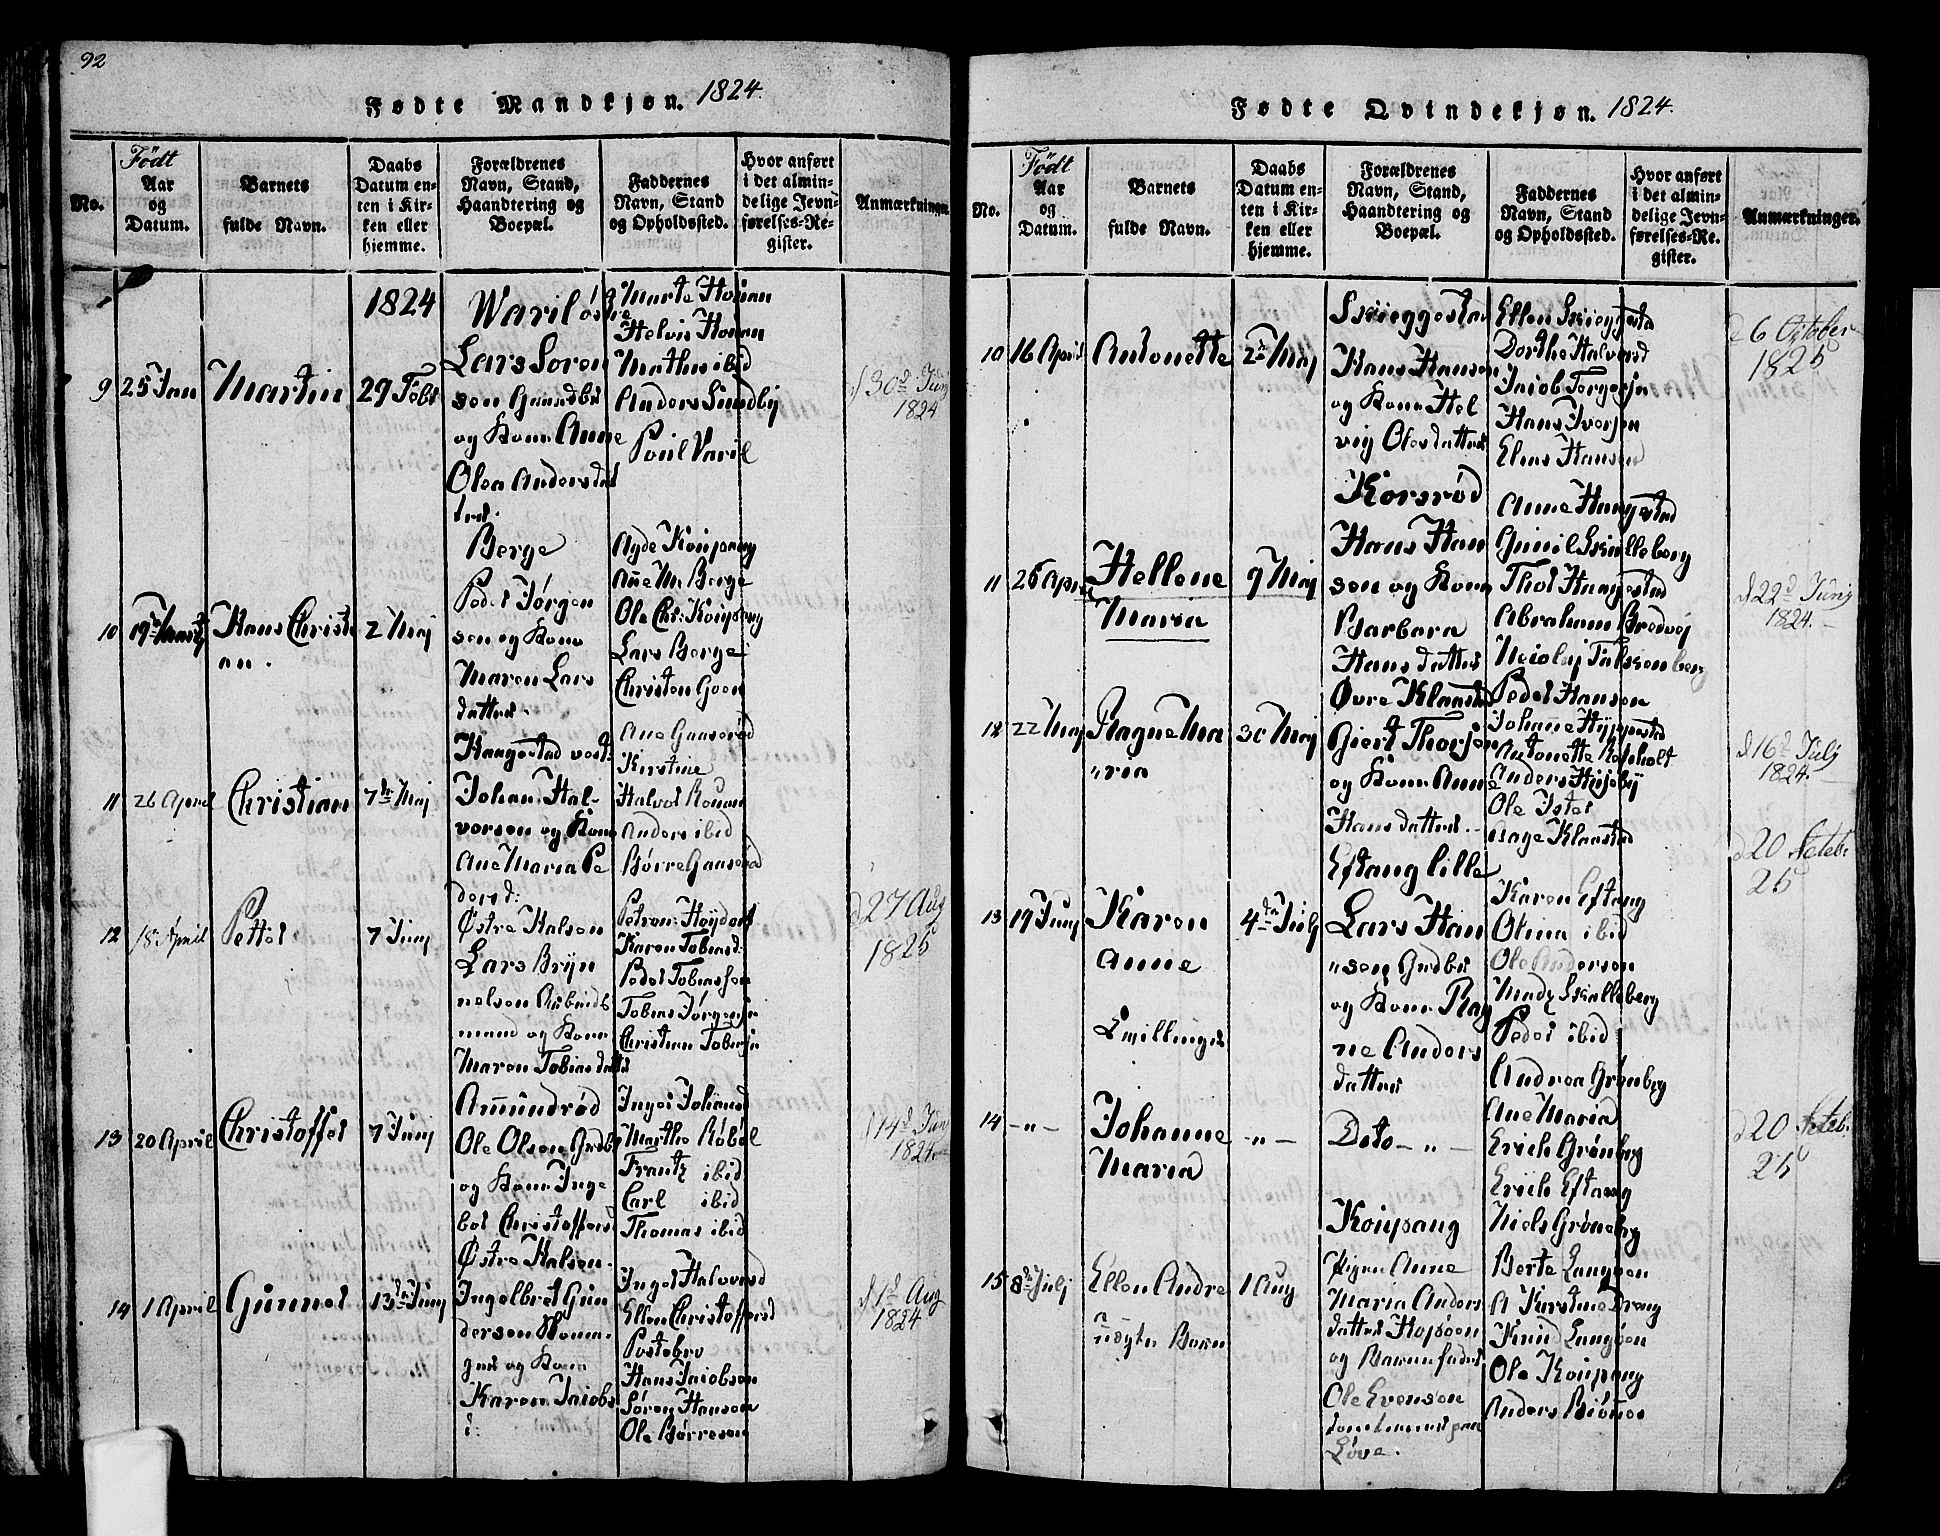 92
Fødte Mandkjøn. 1824.
No.
Födt
Aar
og
Datum.
Barnets
fulde Navn.
Daabs
Datum en-
ten i Kir-
ken eller
hjemme.
Forældrenes
Navn, Stand,
Haandtering og
Boepæl.
Faddernes
Navn, Stand
og Opholdssted.
Hvor anført
i det almin-
delige Jevn-
førelses-Re-
gister.
Anmærkninger
9
25 Jan
Martin
1824
29 Febr
Lars Soren
sen
og Kone Anne
Olea Andersdat
ter.
Marte Honan
Helvin Honan
Mathus ibid
Anders Sundby
Poul Varil
d 30d Junj
1824
10
19 Marts
Hans Christi
an.
2 Maj
Berge
Peder Jørgen
sen og Kone
Maren Lars
datter.
Ane M: Berge
Ole Chr:
Lars Berge
Christen Goen
11
26 April
Christian
7de Maj
Haugestad vest:
Johan Hal-
vorsen og Kone
Ane Maria Pe
dersd:
Ane Gaaserød
Kirstine
Halvor
Anders ibid
Børre Gaaserød
12
18 April
Petter
7 Junj
Østre Halsen
Lars Bryn
nelsen Arbeids
mand og Kone
Maren Tobiasdatter
Karen Tobiasd:
Peder Tobiassen
Tobias Jørgensen
Christian Tobiasen
d 27 Aug
1825
13
20 April
Christoffer
7 Junj
Amundrød
Ole Olsen Grdb
og Kone Inge
bor Christoffersd
Inger Johansd
Marthe Røbøl
Frantz ibid
Carl ibid
Thomas ibid
d 14d Jun
1824
14
1 April
Gunner
13de Junj
Østre Halsen
Ingelbret Gun
dersen
og Kone
Karen Jacobs
d:
Inger Halvorsd
Ellen Christoffersd
Postebro
Hans Jacobsen
Søren Hansen
Ole Børresen
d 1d Aug
1824
Fødte Qvindekjøn. 1824.
No.
Födt
Aar
og
Datum.
Barnets
fulde Navn.
Daabs
Datum en-
ten i Kir-
ken eller
hjemme.
Forældrenes
Navn, Stand,
Haandtering og
Boepæl.
Faddernes
Navn, Stand
og Opholdssted.
Hvor anført
i det almin-
delige Jevn-
førelses-Re-
gister.
Anmærkninger.
10
16 April
Antonette
2de Maj
Skieggestad
Hans Hansen
og Kone Hel
vig Olesdatter
Ellen Skieggestad
Dorthe Halvorsd
Jacob Torgersen
Hans Iversen
Elias Hansen
d 6 October
1825
11
26 April
Hellene
Maria
9 Maj
Korsrød
Hans Han
sen og Kone
Barbara
Hansdatter
Anne Haugestad
Gunil Skalleberg
Thor Haugestad
Abraham Bredvej
d 22d Junj
1824.
12
22 Maj
Ragne Ma
ria
30 Maj
Øvre Klaastad
Giert Thorsen
og Kone Anne
Hansdatter.
Peder Hansen
Antonette
Anders Huseby
Ole Ister
Aage Klaastad
d 16d Julj
1824.
13
19 Junj
Karen
Anne
4de Julj
Eftang lille
Lars Han
sen Grdbr
og Kone Rag
ne Anders
datter
Karen Eftang
Olina ibid
Ole Anderson
Skalleberg
Peder ibid
Andrea Grønberg
d 20 Octbr
25
14
-"-
Johanne
Maria
-"-
Dito -"-
Ane Maria
Erich Grønberg
Erich Eftang
Niels Grønberg
d 20 Octbr
25
15
8de Julj
Ellen Andre
a
uægte Barn
1 Aug
Pigen Anne
Maria Anders
datter
og Barnefader
Ole Evensen
Berte Langøen
Knud Langøen